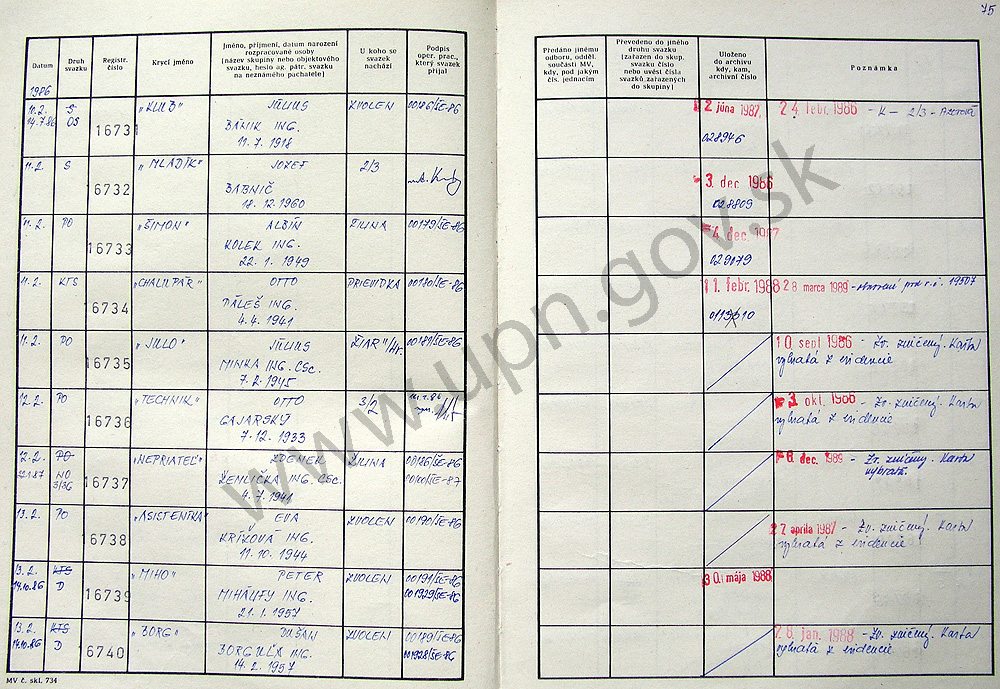 75
Datum
Druh svazku
Registr. číslo
Krycí jméno
Jméno, příjmení, datum narození rozpracované osoby (název skupiny nebo objektového svazku, heslo ag. pátr. svazku na neznámého pachatele)
U koho se svazek nachází
Podpis oper. prac., který svazek přijal
Předáno jinému odboru, odděl. součásti MV, kdy, pod jakým čís. jednacím
Převedeno do jiného druhu svazku (zařazen do skup. svazku číslo nebo uvést čísla svazků zařazených do skupiny)
Uloženo do archivu kdy, kam, archivní číslo
Poznámka
1986
11.2. S 16731 „KLUB" JÚLIUS ZVOLEN 00186/SE-86 2 júna 1987 24 febr. 1986 - K - 2/3 -
14.7.86 OS BÁNIK ING.
11.7.1918 028946
11.2. S 6732 „MLADÍK" JOZEF 2/3 3. dec. 1986
BABNIČ
18.12.1960 028809
11.2. PO 16733 „ŠIMON" ALBÍN ŽILINA 00179/SE-86 4. dec. 1987
KOLEK ING.
22.1.1949 029179
11.2. KTS 6734 „CHALUPÁR" OTTO PRIEVIDZA 00180/SE-86 11. febr. 1988 28 marca 1989 - pod r.č. 19507
PÁLEŠ ING.
4.4.1941
11.2. PO 16735 „JULO" JÚLIUS ŽIAR/Hr. 00181/SE-86 10. sept 1986 - Zv. zničený. Karta
MINKA ING. CSc. vybratá z evidencie
7.2.1945
12.2. PO 16736 „TECHNIK" OTTO 3/2 3. okt. 1986 - Zv. zničený. Karta
GAJARSKÝ vybratá z evidencie
7.12.1933
12.2. PO 16737 „NEPRIATEĽ" ZDENEK ŽILINA 00186/SE-86 8. dec. 1989 - Zv. zničený. Karta
NO ŽEMLIČKA ING. CSc. vybratá.
4.7.1941
13.2. PO 16738 „ASISTENTKA" EVA ZVOLEN 00190/SE-86 27 apríla 1987 - Zv. zničený. Karta
KŘÍKOVÁ ING. vybratá z evidencie
11.10.1944
13.2. KTS 16739 „MIHO" PETER ZVOLEN 00191/SE-86 30. mája 1988
14.10.86 D MIHÁLFY ING. 001929/SE-86
21.1.1957
13.2. KTS 6740 „BORG" DUŠAN ZVOLEN 00189/SE-86 26 jan. 1988 - Zv. zničený. Karta
14.10.86 D BORGUĽA ING. 001928/SE-86 vybratá z evidencie
14.2.1957
MV č. skl. 734
www.upn.gov.sk